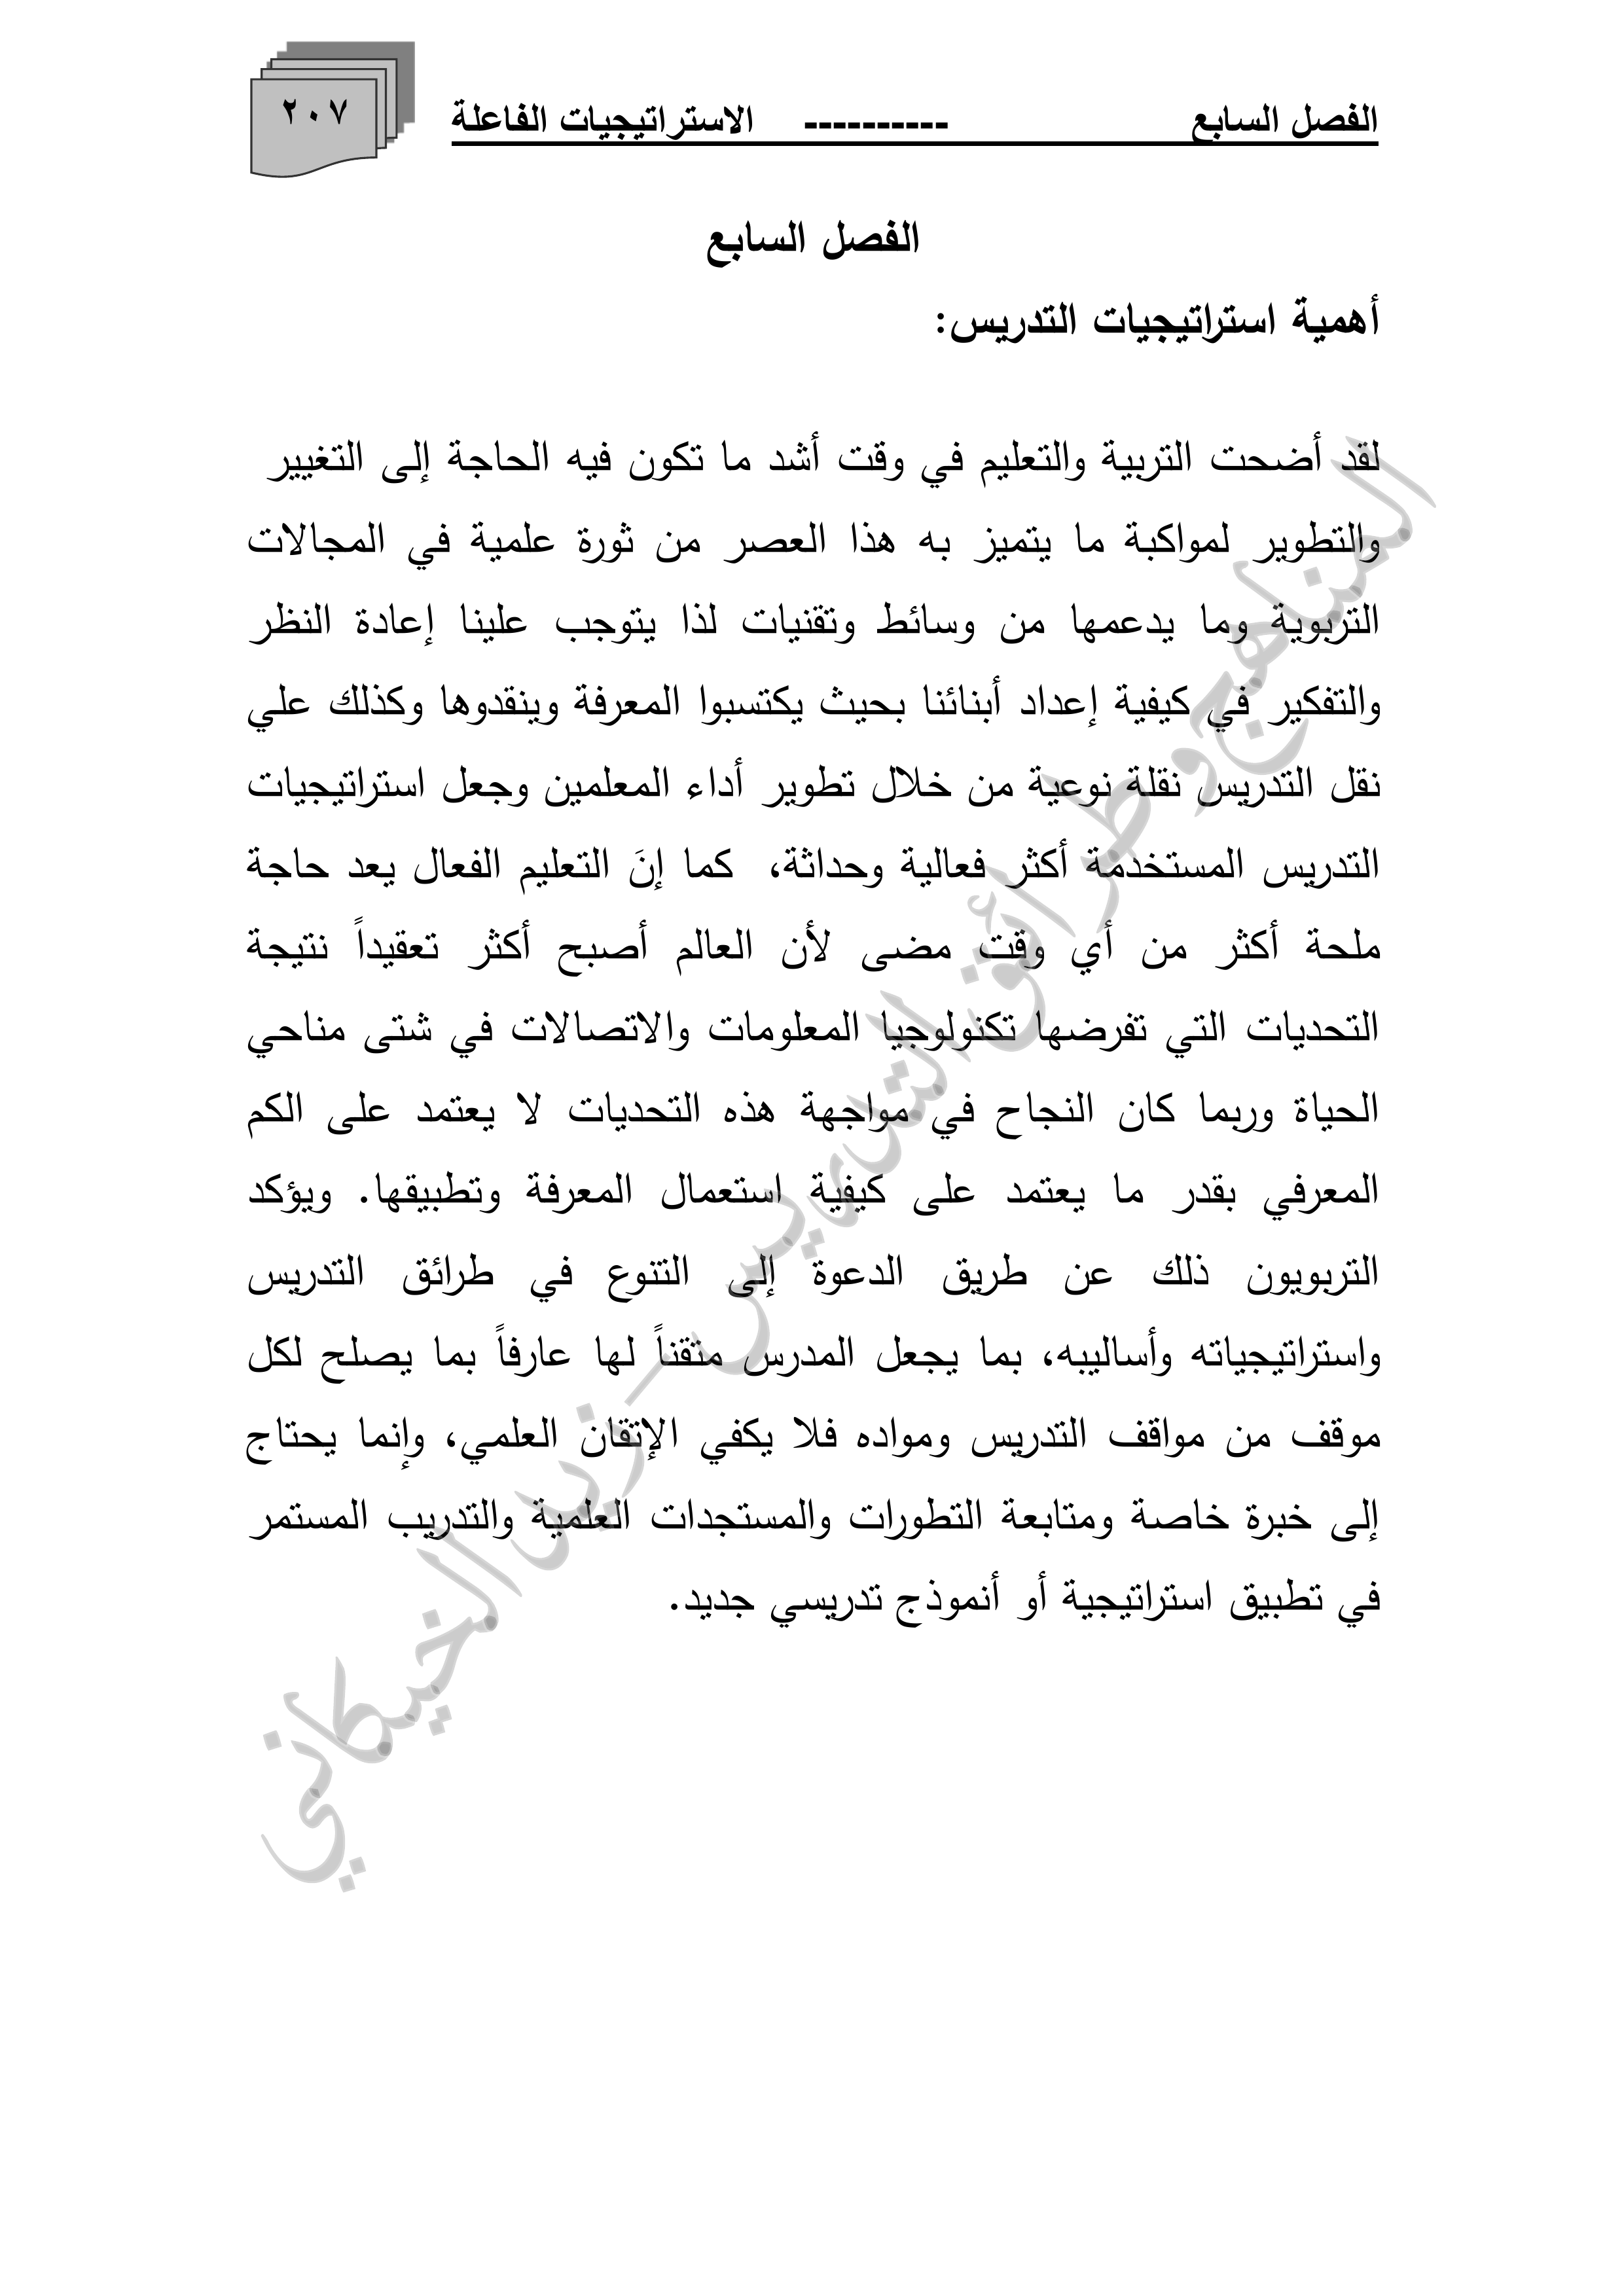 الفصل السابع ---------- الاستراتيجيات الفاعلة
٢٠٧
الفصل السابع
أهمية استراتيجيات التدريس:
لقد أضحت التربية والتعليم في وقت أشد ما تكون فيه الحاجة إلى التغيير
والتطوير لمواكبة ما يتميز به هذا العصر من ثورة علمية في المجالات
التربوية وما يدعمها من وسائط وتقنيات لذا يتوجب علينا إعادة النظر
والتفكير في كيفية إعداد أبنائنا بحيث يكتسبوا المعرفة وينقدوها وكذلك علي
نقل التدريس نقلة نوعية من خلال تطوير أداء المعلمين وجعل استراتيجيات
التدريس المستخدمة أكثر فعالية وحداثة، كما إنَ التعليم الفعال يعد حاجة
ملحة أكثر من أي وقت مضى لأن العالم أصبح أكثر تعقيداً نتيجة
التحديات التي تفرضها تكنولوجيا المعلومات والاتصالات في شتى مناحي
الحياة وربما كان النجاح في مواجهة هذه التحديات لا يعتمد على الكم
المعرفي بقدر ما يعتمد على كيفية استعمال المعرفة وتطبيقها. ويؤكد
التربويون ذلك عن طريق الدعوة إلى التنوع في طرائق التدريس
واستراتيجياته وأساليبه، بما يجعل المدرس متقناً لها عارفاً بما يصلح لكل
موقف من مواقف التدريس ومواده فلا يكفي الإتقان العلمي، وإنما يحتاج
إلى خبرة خاصة ومتابعة التطورات والمستجدات العلمية والتدريب المستمر
في تطبيق استراتيجية أو أنموذج تدريسي جديد.
المناهج وطرائق التدريس – زيد الخيكاني